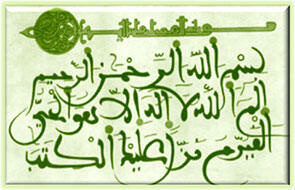 بِسْمِ اللَّهِ الرَّحْمَٰنِ الرَّحِيمِ
الم اللَّهُ لَا إِلَٰهَ إِلَّا هُوَ الْحَيُّ
الْقَيُّومُ نَزَّلَ عَلَيْكَ الْكِتَٰبَ